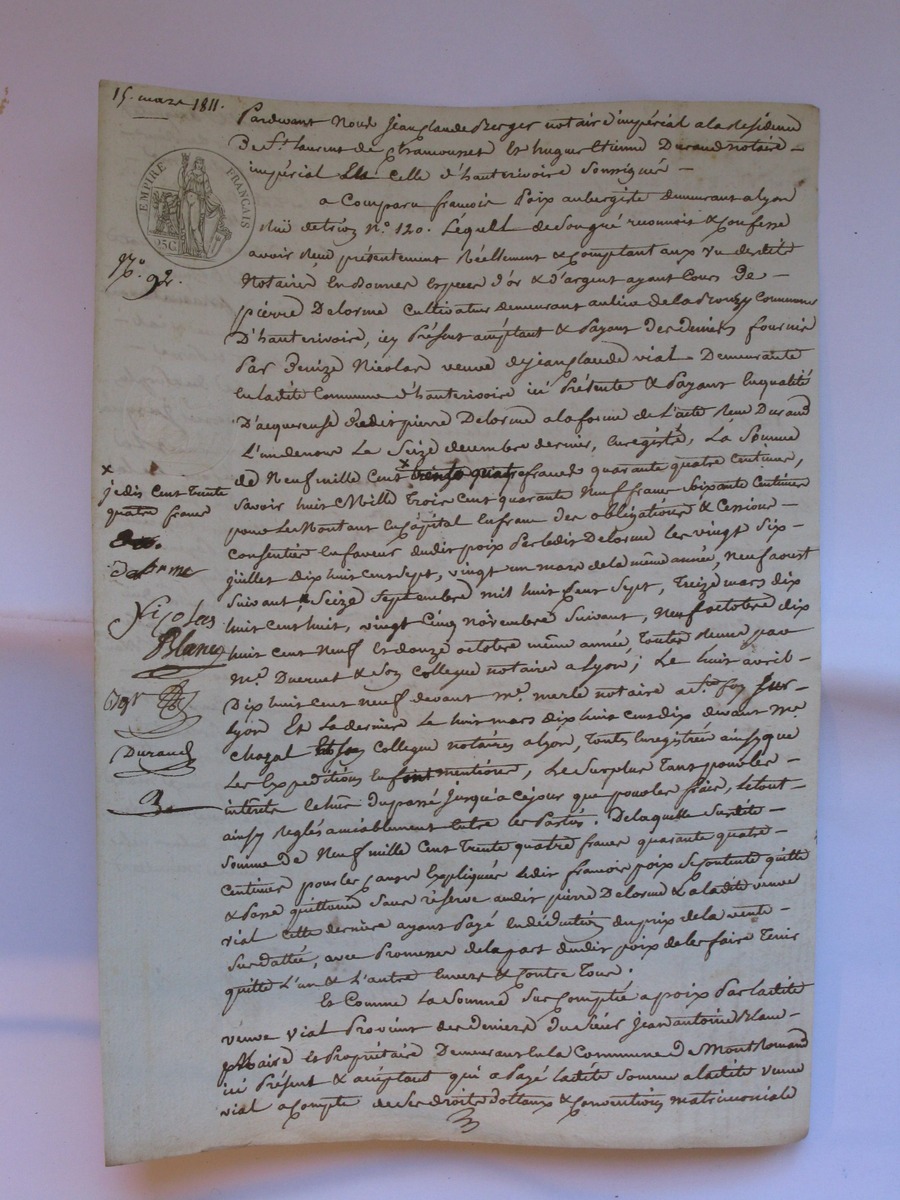 15. mars 1811.
EMPIRE FRANÇAIS
25C
No. 92.
Pardevant Nous Jean Claude Berger notaire impérial a la résidence
De St. Laurent de Chamousset Et hugue Etienne Durand notaire
impérial a celle d'hauterivoire Soussignés
a Comparu francois Poix aubergiste demeurant a lyon
Ruë de trion No. 120. Lequel de Son gré reconnoit & Confesse
avoir Reçu présentement Réellement & comptant aux vu desdits
Notaires En bonnes Especes d'or & d'argent ayant Cours De
pierre Delorme Cultivateur demeurant au lieu de la Commune
D'hauterivoire, icy Présent acceptant & Payant des deniers fournis
Par Nicolas veuve de jean claude vial Demeurante
En ladite Commune d'hauterivoire ici Présente & Payant En qualité
D'acquereuse dudit pierre Delorme a la forme de L'acte Reçu Durand
L'un de nous Le Seize decembre dernier, Enregistré, La Somme
de Neuf mille Cent trente quatre francs quarante quatre Centimes,
Savoir huit Mille Trois Cent quarante Neuf francs Soixante Centimes
pour Le Montant En Capital En franc des obligations & Cessions
Consenties En faveur dudit poix Par ledit Delorme les vingt Six
juillet Dix huit Cent Sept, vingt un mars de la même année, neuf aoust
Suivant & Seize Septembre mil huit Cent Sept, Treize mars dix
huit Cent huit, vingt Cinq novembre Suivant, Neuf octobre dix
huit Cent Neuf Et douze octobre même année, Toutes Reçues par
Me. & Son Collegue notaires a Lyon; Le huit avril
Dix huit Cent neuf devant Me. merle notaire a Ste. foy Sur
Lyon Et La derniere Le huit mars dix huit Cent dix devant Me.
Chazal Et Son Collegue notaires a lyon, Toutes Enregistrées ainsy que
Les Expeditions En font mention, Le Surplus Tant pour les
intérêts du passé jusqu'a ce jour que pour les frais, le tout
ainsy reglés amiablement Entre les Parties. De laquelle Susdite
Somme de Neuf mille Cent Trente quatre francs quarante quatre
Centimes pour les Causes Expliquées Ledit francois poix Se Contente quitte
& Passe quittance Sans réserve audit pierre Delorme & a ladite veuve
vial Cette derniere ayant Payé En déduction du prix de la vente
Sus dattée, avec Promesse de la part dudit poix de les faire Tenir
quitte L'un & L'autre Envers & Contre Tous.
Et Comme La Somme Sus Comptée a poix Par ladite
veuve vial Provient des deniers du Sieur jean antoine Blanc
Propriétaire Demeurant En la Commune de Montromand
ici Présent & acceptant qui a Payé ladite Somme a ladite veuve
vial a Compte de Ses droits dottaux & Conventions matrimoniale
x
je dis Cent Trente
quatre francs
Delorme
Nicolas
Blanc
Durand